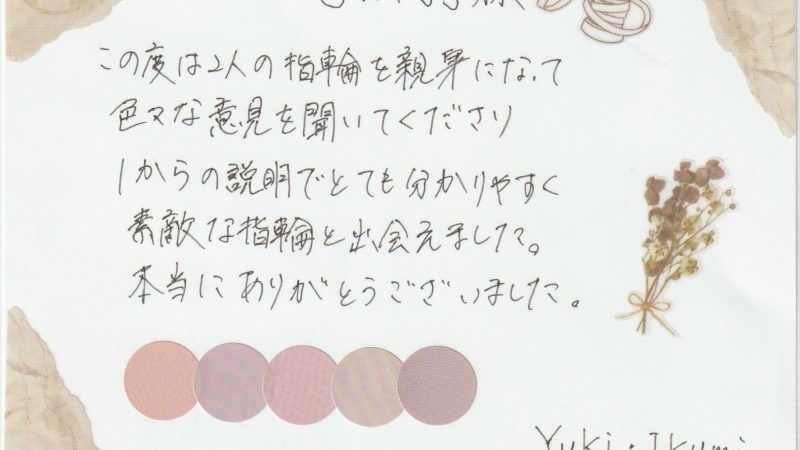 この度は2人の指輪を親身になって
色々な意見を聞いてくださり
1からの説明でとても分かりやすく
素敵な指輪と出会えました。
本当にありがとうございました。
Yuki・Ikumi